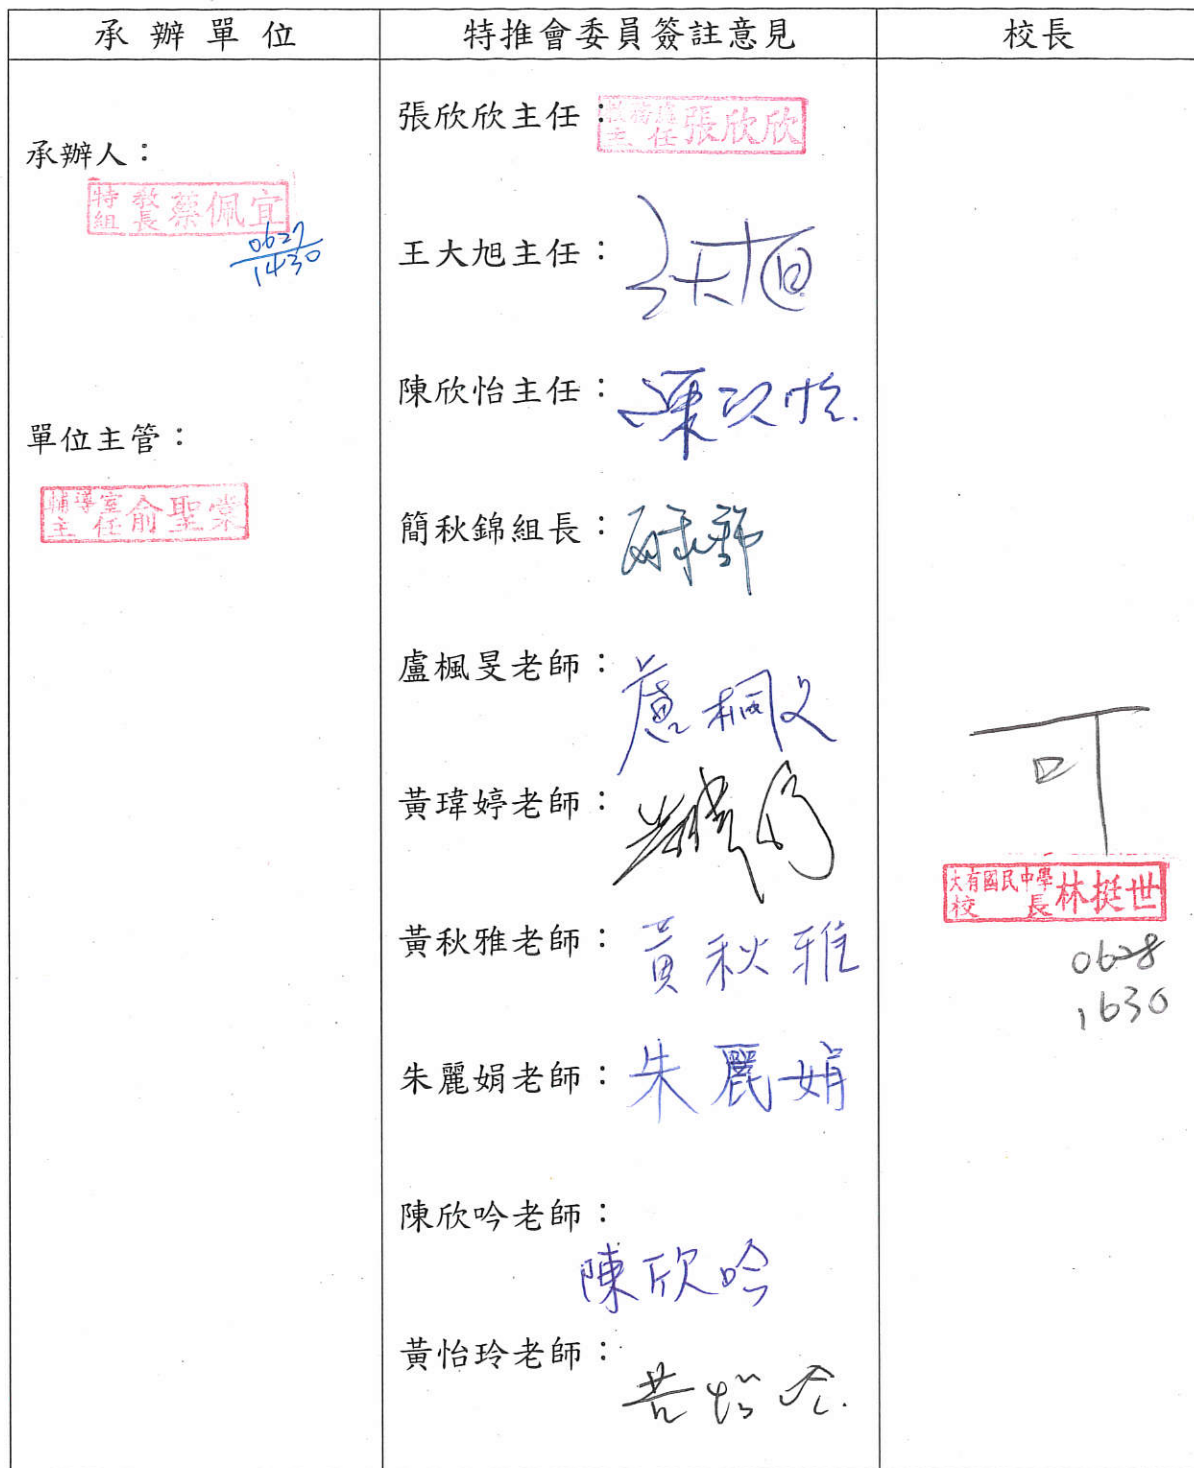 承辦單位
特推會委員簽註意見
校長
承辦人：
特教組長 蔡佩宜
0627
1430
單位主管：
輔導室主任 俞聖棠
張欣欣主任：
教務處主任 張欣欣
王大旭主任：
王大旭
陳欣怡主任：
陳欣怡
簡秋錦組長：
簡秋錦
盧楓旻老師：
盧楓旻
黃瑋婷老師：
黃瑋婷
黃秋雅老師：
黃秋雅
朱麗娟老師：
朱麗娟
陳欣吟老師：
陳欣吟
黃怡玲老師：
黃怡玲
可
大有國民中學校長 林挺世
0628
1630